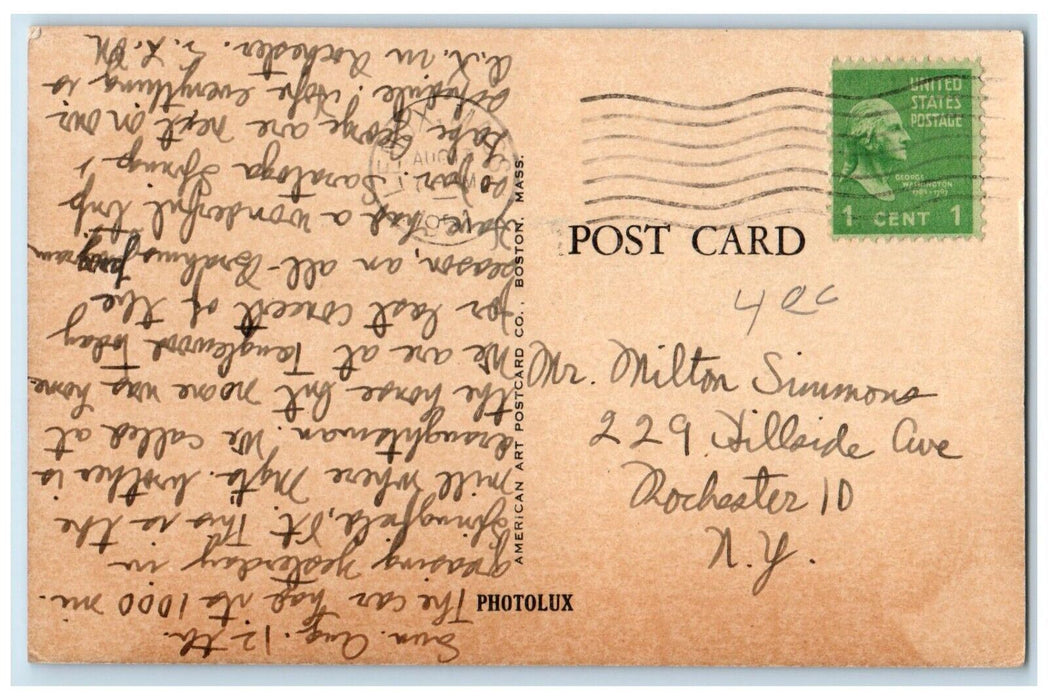 Sun. Aug. 12th.
The car has its 1000 mi.
greasing yesterday in
Springfield, Vt. This is the
mill where Mgt's. brother is
draughtsman. We called at
the house but no one was home
We are at Tanglewood today
for last concert of the
season, an all-Brahms program
Have had a wonderful trip
so far. Saratoga Springs &
Lake George are next on our
schedule. Hope everything is
O.K. in Rochester.
AMERICAN ART POSTCARD CO., BOSTON, MASS.
PHOTOLUX
AUG
UNITED
STATES
POSTAGE
GEORGE
WASHINGTON
1789-1797
1 CENT 1
POST CARD
Mr. Milton Simmons
229 Hillside Ave
Rochester 10
N.Y.